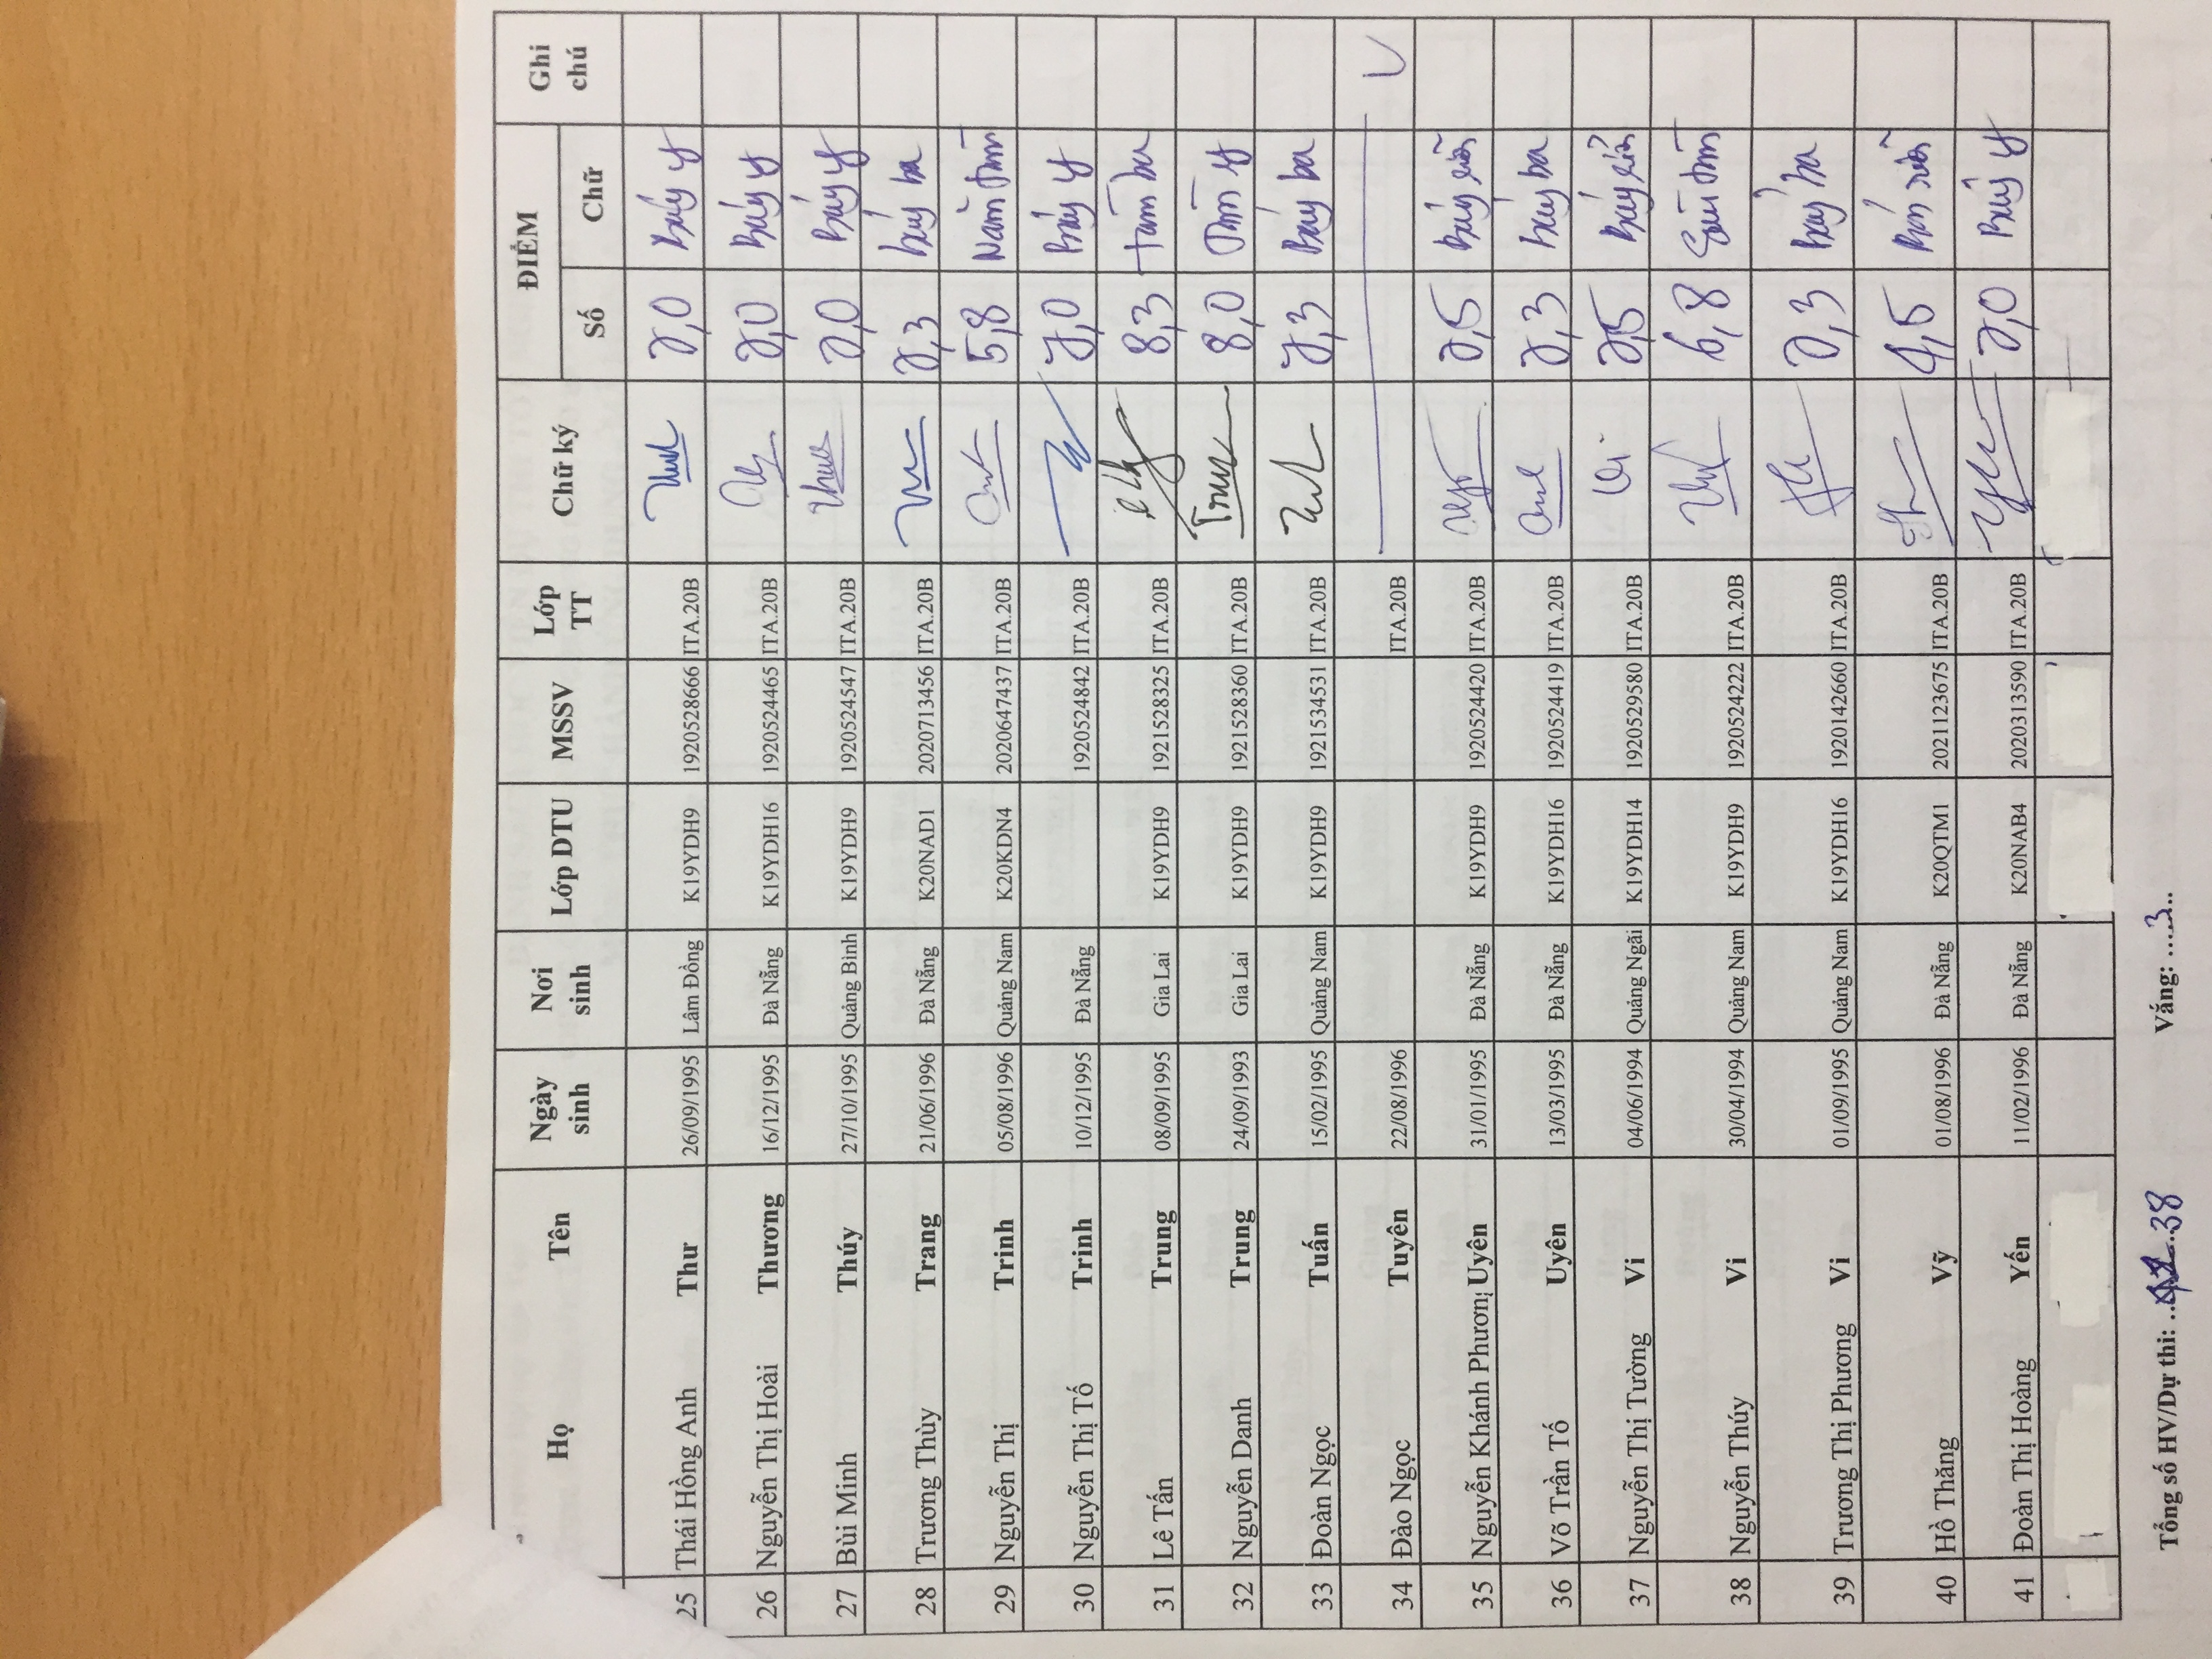 Họ Tên Ngày sinh Nơi sinh Lớp DTU MSSV Lớp TT Chữ ký ĐIỂM Ghi chú
Số Chữ
25 Thái Hồng Anh Thư 26/09/1995 Lâm Đồng K19YDH9 1920528666 ITA.20B 7,0 Bảy
26 Nguyễn Thị Hoài Thương 16/12/1995 Đà Nẵng K19YDH16 1920524465 ITA.20B 7,0 Bảy
27 Bùi Minh Thúy 27/10/1995 Quảng Bình K19YDH9 1920524547 ITA.20B 7,0 Bảy
28 Trương Thùy Trang 21/06/1996 Đà Nẵng K20NAD1 2020713456 ITA.20B 7,3 bảy ba
29 Nguyễn Thị Trinh 05/08/1996 Quảng Nam K20KDN4 2020647437 ITA.20B 5,8 Năm tám
30 Nguyễn Thị Tố Trinh 10/12/1995 Đà Nẵng 1920524842 ITA.20B 7,0 Bảy
31 Lê Tấn Trung 08/09/1995 Gia Lai K19YDH9 1921528325 ITA.20B 8,3 tám ba
32 Nguyễn Danh Trung 24/09/1993 Gia Lai K19YDH9 1921528360 ITA.20B Trung 8,0 Tám
33 Đoàn Ngọc Tuấn 15/02/1995 Quảng Nam K19YDH9 1921534531 ITA.20B 7,3 Bảy ba
34 Đào Ngọc Tuyên 22/08/1996 ITA.20B V
35 Nguyễn Khánh Phươn Uyên 31/01/1995 Đà Nẵng K19YDH9 1920524420 ITA.20B 7,5 Bảy rưỡi
36 Võ Trần Tố Uyên 13/03/1995 Đà Nẵng K19YDH16 1920524419 ITA.20B 7,3 bảy ba
37 Nguyễn Thị Tường Vi 04/06/1994 Quảng Ngãi K19YDH14 1920529580 ITA.20B Vi 7,5 Bảy rưỡi
38 Nguyễn Thúy Vi 30/04/1994 Quảng Nam K19YDH9 1920524222 ITA.20B 6,8 Sáu tám
39 Trương Thị Phương Vi 01/09/1995 Quảng Nam K19YDH16 1920142660 ITA.20B 7,3 bảy ba
40 Hồ Thăng Vỹ 01/08/1996 Đà Nẵng K20QTM1 2021123675 ITA.20B 4,5 Bốn rưỡi
41 Đoàn Thị Hoàng Yến 11/02/1996 Đà Nẵng K20NAB4 2020313590 ITA.20B 7,0 Bảy
Tổng số HV/Dự thi: 38 Vắng: ....3...